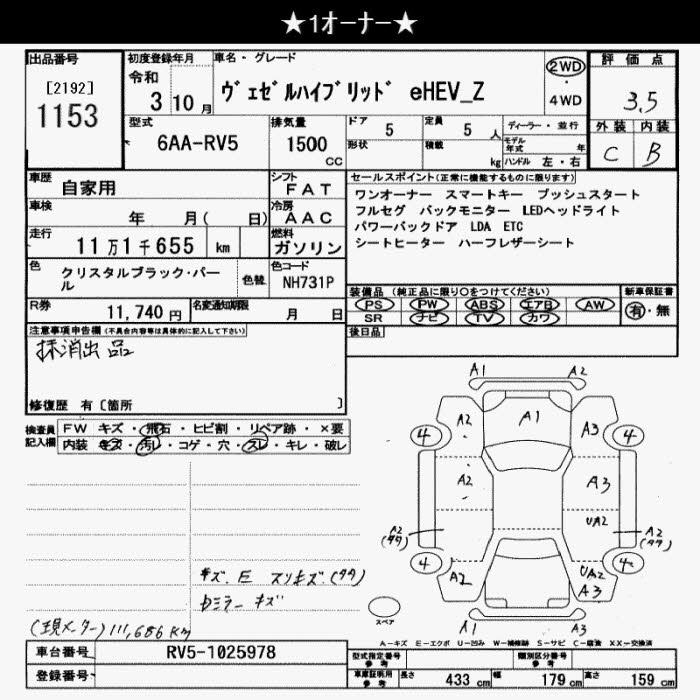 ★1オーナー★
出品番号
[2192]
1153
初度登録年月
令和
3 10月
車名・グレード
ヴェゼルハイブリッド eHEV_Z
2WD
4WD
評価点
3.5
外装 内装
C B
型式
6AA-RV5
排気量
1500
CC
ドア
5
形状
定員
5 人
積載
kg
ディーラー・並行
モデル年式 年
ハンドル 左・右
車歴
自家用
車検
年 月( 日)
走行
11万1千655 km
色
クリスタルブラック・パール
色替
シフト
FAT
冷房
AAC
燃料
ガソリン
色コード
NH731P
R券
11,740円
名変通知期限
月 日
セールスポイント(正常に機能するものに限ります)
ワンオーナー スマートキー プッシュスタート
フルセグ バックモニター LEDヘッドライト
パワーバックドア LDA ETC
シートヒーター ハーフレザーシート
装備品(純正品に限り○をつけてください)
PS PW ABS エアB AW
SR ナビ TV カワ
新車保証書
有・無
後日品
注意事項申告欄(不具合内容等は具体的に記入して下さい)
抹消出品
修復歴 有〔箇所 〕
検査員記入欄
FW キズ・飛石・ヒビ割・リペア跡・×要
内装 キズ・汚レ・コゲ・穴・スレ・キレ・破レ
キズ.E スリキズ(タタ)
ミラーキズ
(現メーター) 111,686 Km
A1 A2
A2 A1 A3
4 4
A2 A3
UA2
A2
(タタ)
A2
(タタ)
4 4
A2 UA2
A3
A1 A3
スペア
A-キズ E-エクボ U-凹み W-補修跡 S-サビ C-腐蝕 XX-交換済
車台番号
RV5-1025978
登録番号
型式指定番号
参考
類別区分番号
参考
車庫証明用
参考
長さ
433 cm
幅
179 cm
高さ
159 cm